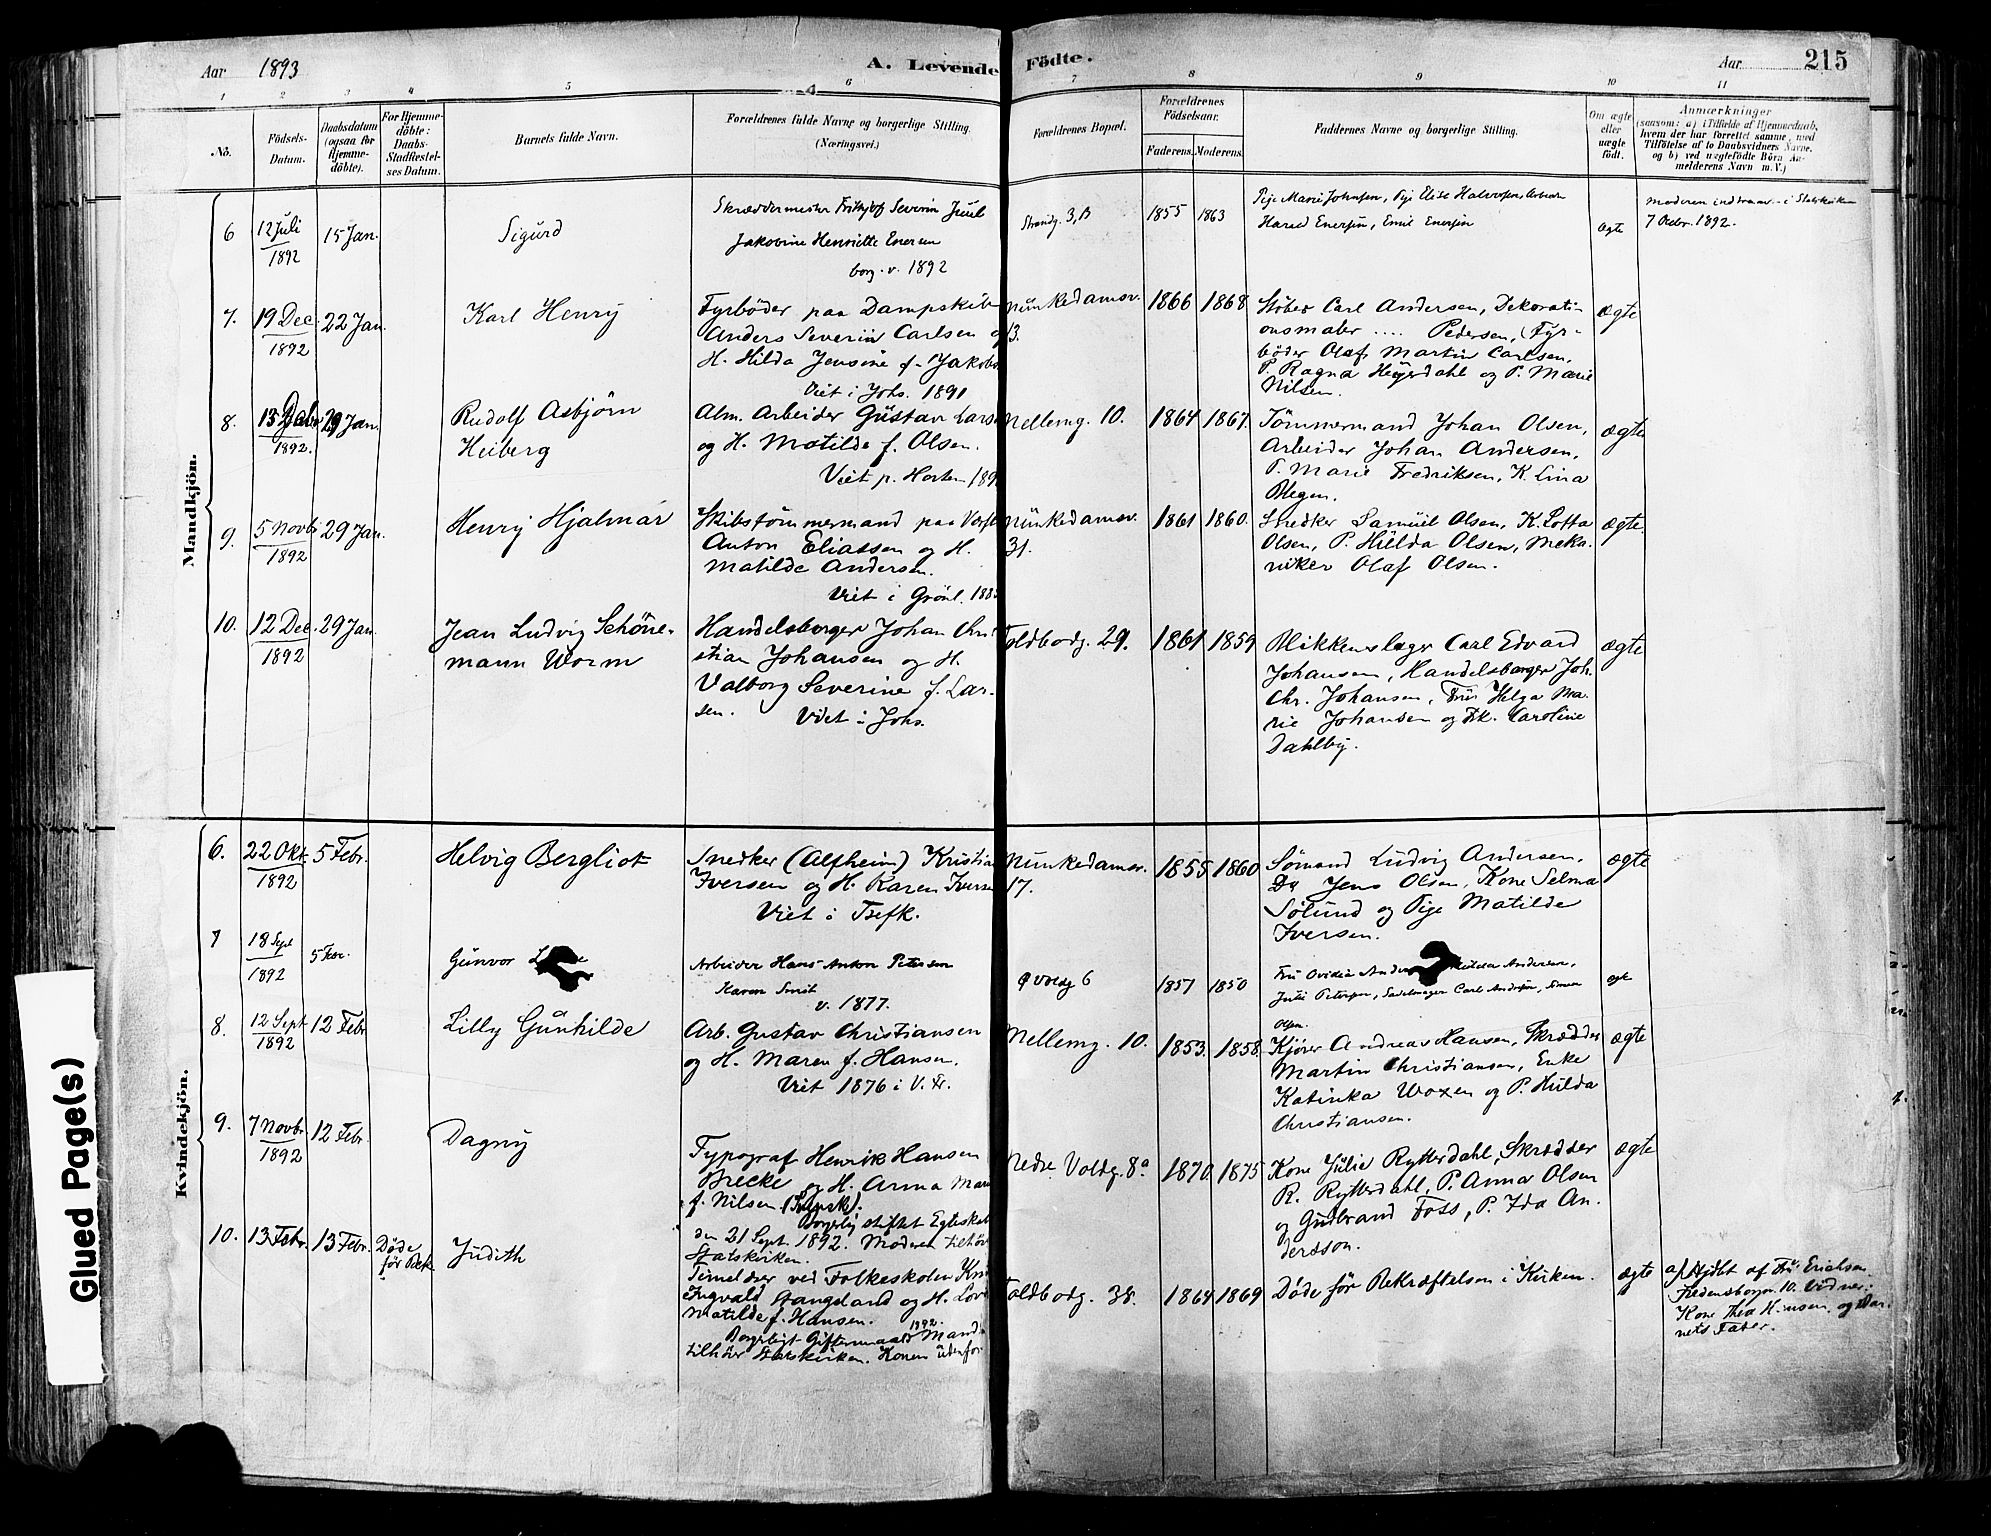 Aar 1893 A. Levende Födte. Aar 215
1 2 3 4 5 6 7 8 9 10 11
No.
Födsels-
Datum.
Daabsdatum
(ogsaa for
Hjemme-
döbte).
For Hjemme-
döbte:
Daabs-
Stadfæstel-
ses Datum.
Barnets fulde Navn.
Forældrenes fulde Navne og borgerlige Stilling.
(Næringsvei.)
Forældrenes Bopæl.
Forældrenes
Födselsaar.
Faderens. Moderens.
Faddernes Navne og borgerlige Stilling.
Om ægte
eller
uægte
födt.
Anmærkninger
(saasom: a) i Tilfælde af Hjemmedaab,
hvem der har forrettet samme, med
Tilföielse af to Daabsvidners Navne.
og b) ved uægtefödte Börn An-
melderens Navn m. V.)
Mandkjön.
6 12 Juli
1892
15 Jan.
Sigurd
Skræddermester Frithjof Severin Juul
Jakobine Henriette Enersen
borg. v. 1892
Strandg. 3, B
1855 1863
Pige Marie Johnsen, Pige Elise Halvorsen, Arbeider
Harald Enersen, Emil Enersen
ægte
Moderen i Statskirken
7 Octbr. 1892.
7. 19 Dec.
1892
22 Jan.
Karl Henry
Fyrböder paa Dampskib
Anders Severin Carlsen og
H. Hilda Jensine f. Jakobs
Viet i Johs. 1891
Munkedamsv.
3.
1866 1868
Stöber Carl Andersen, Dekorati-
onsmaler .... Pedersen, Fyr-
böder Olaf Martin Carlsen,
P. Ragna Heyerdahl og P. Marie
Nilsen.
ægte
8. 13
1892.
29 Jan.
Rudolf Asbjörn
Heiberg
Alm. Arbeider Gustav Lars
og H. Matilde f. Olsen.
Viet p. Horten 189
Mellemg. 10.
1864 1867.
Tömmermand Johan Olsen,
Arbeider Johan Andersen,
P. Marie Fredriksen, K. Lina
Blegen.
ægte
9. 5 Novbr
1892
29 Jan.
Henry Hjalmar
Skibstömmermand paa Verft
Anton Eliassen og H.
Matilde Andersen.
Viet i Grönl. 188
Munkedamsv.
31.
1861 1860.
Snedker Samuel Olsen, K. Lotta
Olsen, P. Hulda Olsen, Meka-
niker Olaf Olsen.
ægte.
10. 12 Dec.
1892
29 Jan.
Jean Ludvig Schöne-
mann Worm
Handelsborger Johan Chri-
stian Johansen og H.
Valborg Severine f. Lar-
sen. Viet i Johs.
Toldbodg. 29.
1861 1859
Blikkenslager Carl Edvard
Johansen, Handelsborger Joh.
Chr. Johansen, Fru Helga Ma-
rie Johansen og Frk. Caroline
Dahlby.
ægte
Kvindekjön.
6. 22 Okt.
1892
5 Febr.
Helvig Bergliot
Snedker (Alfheim) Kristian
Iversen og H. Karen Iverse
Viet i Trefk.
Munkedamsv.
17.
1855 1860
Sömand Ludvig Andersen,
Do Jens Olsen, Kone Selma
Sölund og Pige Matilde
Iversen.
ægte
7 18 Sept
1892
5 Febr.
Gunvor
Arbeider Hans Anton Petersen
Karen Smit
v. 1877.
Ø Voldg 6
1857 1850
Fru Ovidia Andersen, Hilda Andersen,
Juli Petersen, Sadelmager Carl Andersen, Simen
Olsen.
ægte
8. 12 Sept
1892
12 Febr
Lilly Gunhilde
Arb. Gustav Christiansen
og H. Maren f. Hansen.
Viet 1876 i V. Fr.
Mellemg. 10.
1853. 1858.
Kjörer Andreas Hansen, Skrædder
Martin Christiansen, Enke
Katinka Woxen og P. Hulda
Christiansen.
ægte
9. 7 Novbr
1892
12 Febr.
Dagny
Typograf Henrik Hansen
Brecke og H. Anna Marie
f. Nilsen (Svensk).
Borgerlig stiftet Egteskab
den 21 Sept. 1892. Moderen tilhör
Statskirken.
Nedre Voldg. 8a
1870. 1875
Kone Julie Rytterdahl, Skrædder
R. Rytterdahl, P. Anna Olsen
og Gudbrand Foss, P. Ida An-
dersson.
ægte
10. 13 Febr. 13 Febr.
Döde
för Bek.
Judith
Timelærer ved Folkeskolen Kri
Ingvald Stangeland og H. Lov
Matilde f. Hansen.
Borgerligt Giftermaal 1892. Mand
tilhör Statskirken. Konen udenfor
Toldbodg. 38.
1864 1869
Döde för Bekræftelsen i Kirken.
ægte
af Hjdbt af Fru Erichsen
Fredensborgv. 10. Vidner:
Kone Thea Hansen og Bar-
nets Fader.
Glued Page(s)